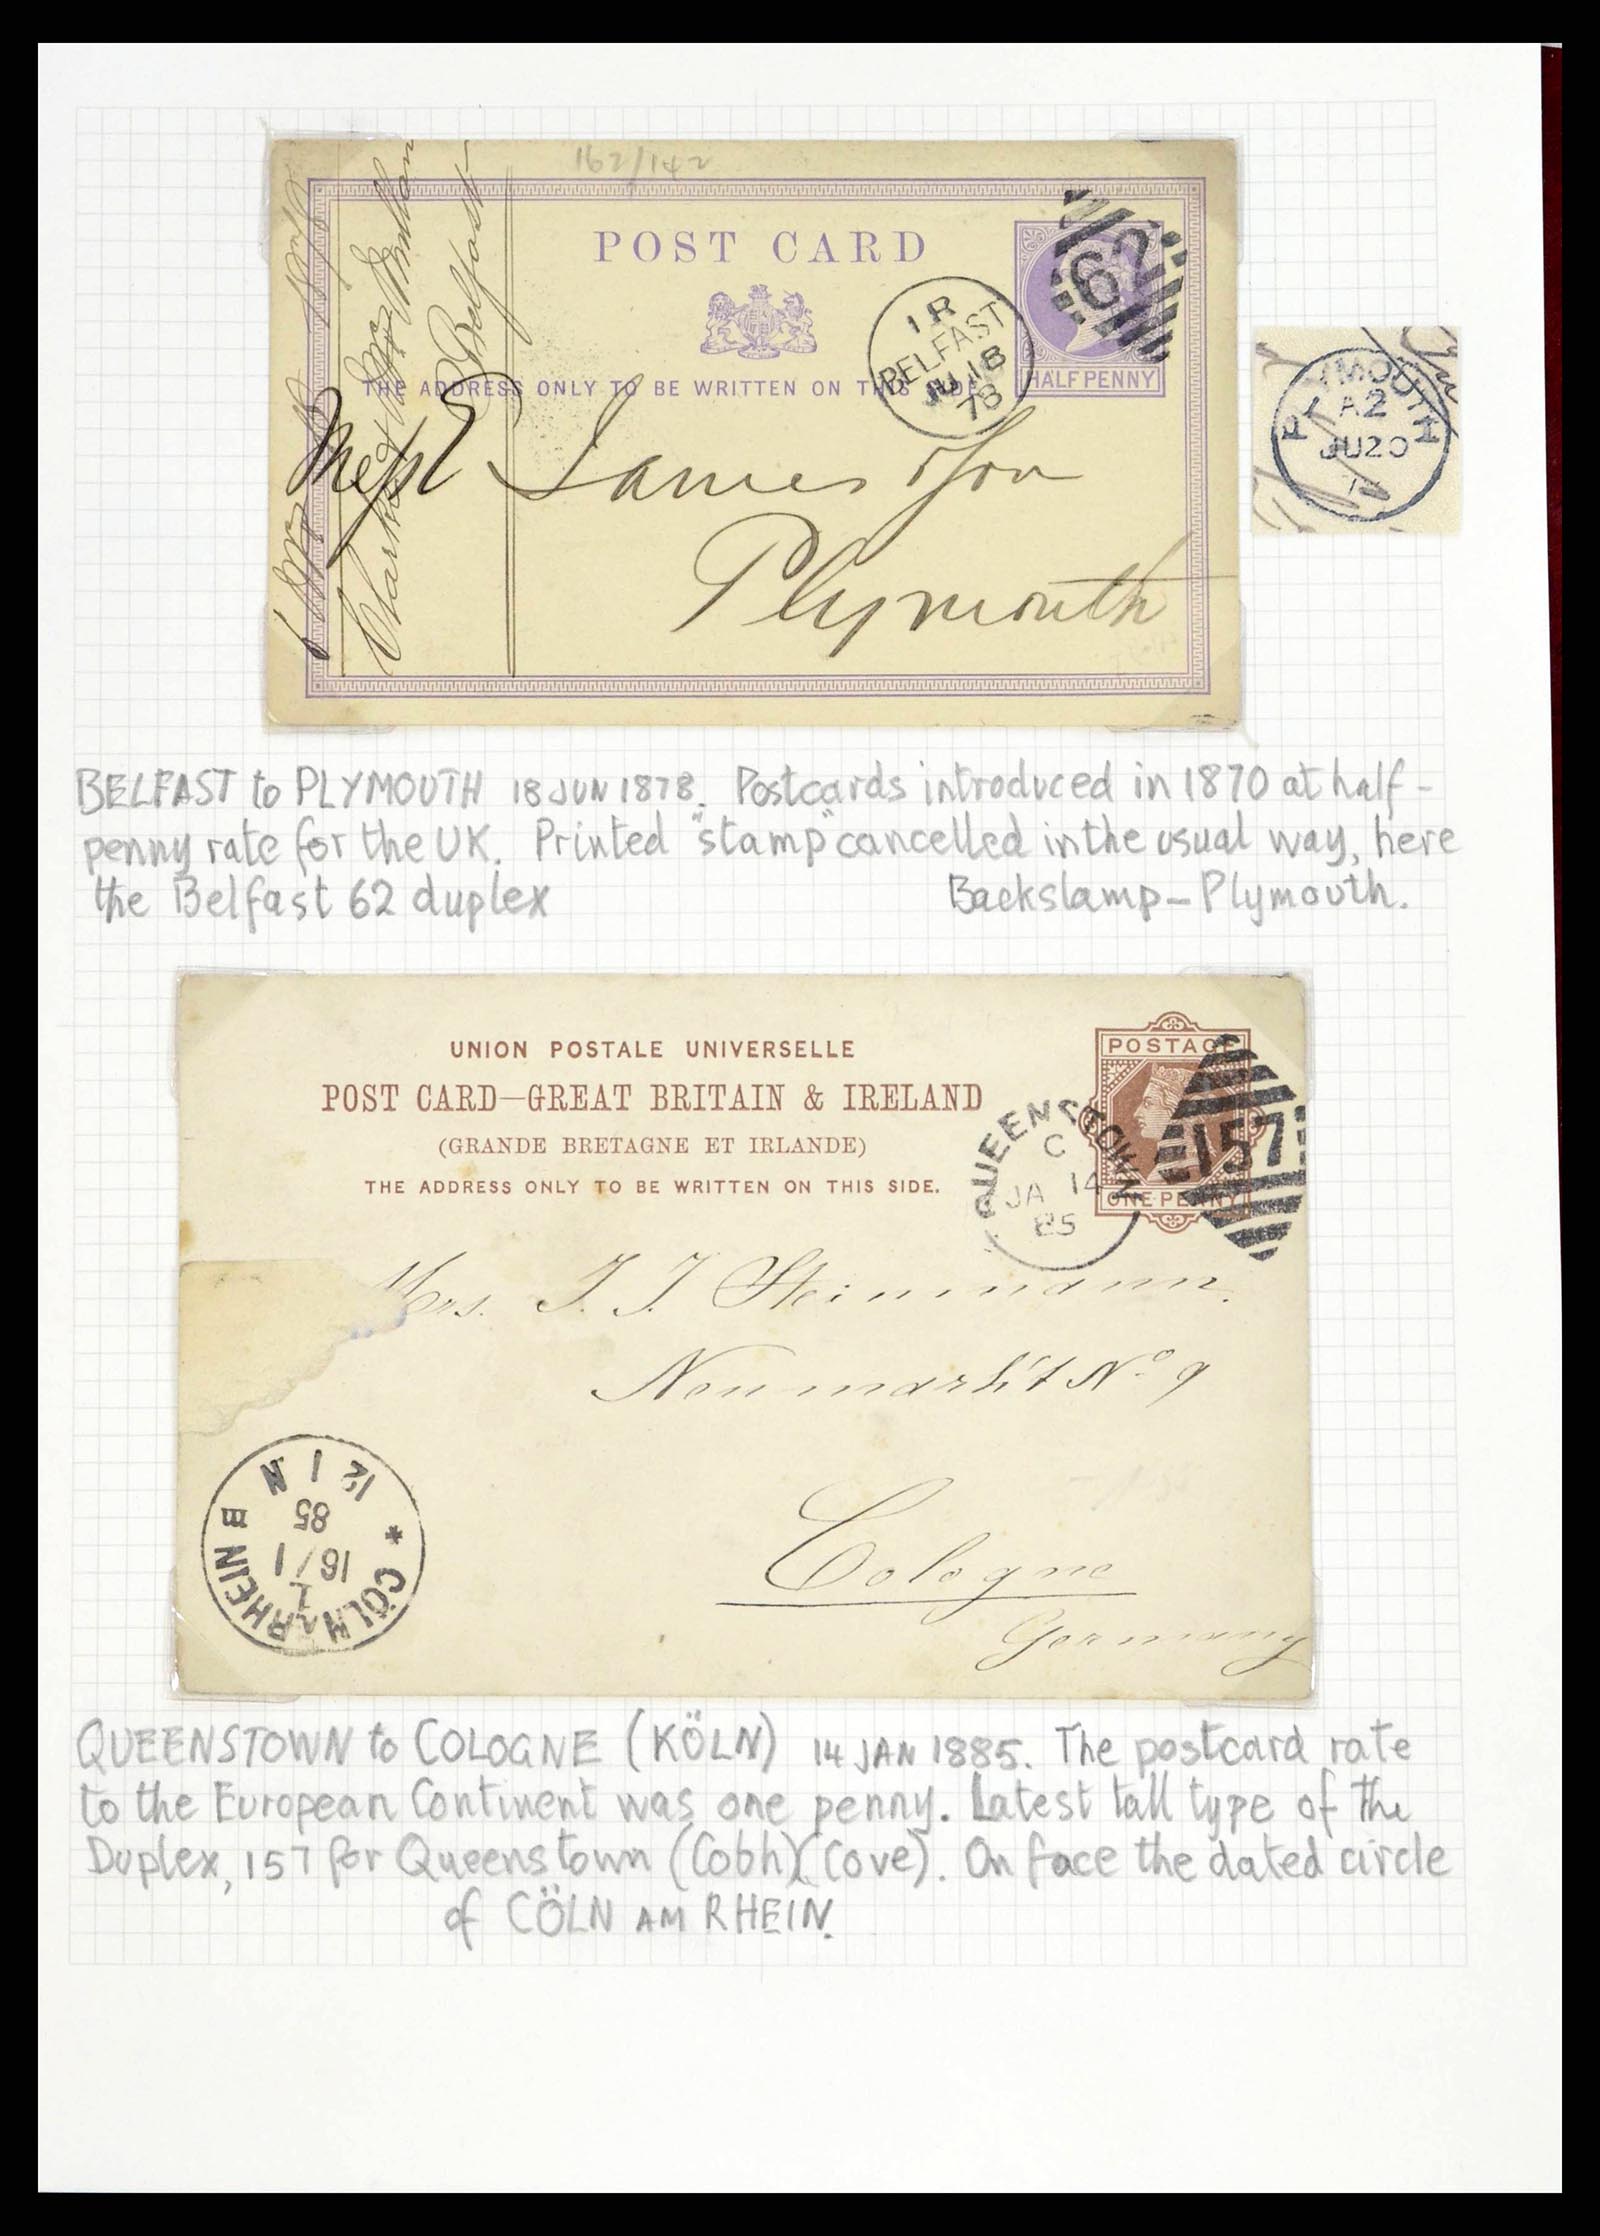 162/142
POST CARD
THE ADDRESS ONLY TO BE WRITTEN ON THIS SIDE
HALFPENNY
62
1R
BELFAST
JU 18
78
Belfast
Messrs James & Son
Plymouth
PLYMOUTH
A2
JU20
BELFAST to PLYMOUTH 18 JUN 1878. Postcards introduced in 1870 at half-
penny rate for the UK. Printed "stamp" cancelled in the usual way, here
the Belfast 62 duplex Backslamp - Plymouth.
UNION POSTALE UNIVERSELLE
POST CARD—GREAT BRITAIN & IRELAND
(GRANDE BRETAGNE ET IRLANDE)
THE ADDRESS ONLY TO BE WRITTEN ON THIS SIDE.
POSTAGE
ONE PENNY
157
QUEENSTOWN
C
JA 14
85
Mrs. J. J. Steinmann.
Neumarkt No. 9
Cologne
Germany
CÖLN RHEIN
16/1
85
12-1 N
QUEENSTOWN to COLOGNE (KÖLN) 14 JAN 1885. The postcard rate
to the European Continent was one penny. Latest tall type of the
Duplex, 157 for Queenstown (Cobh)(Cove). On face the dated circle
of CÖLN AM RHEIN.